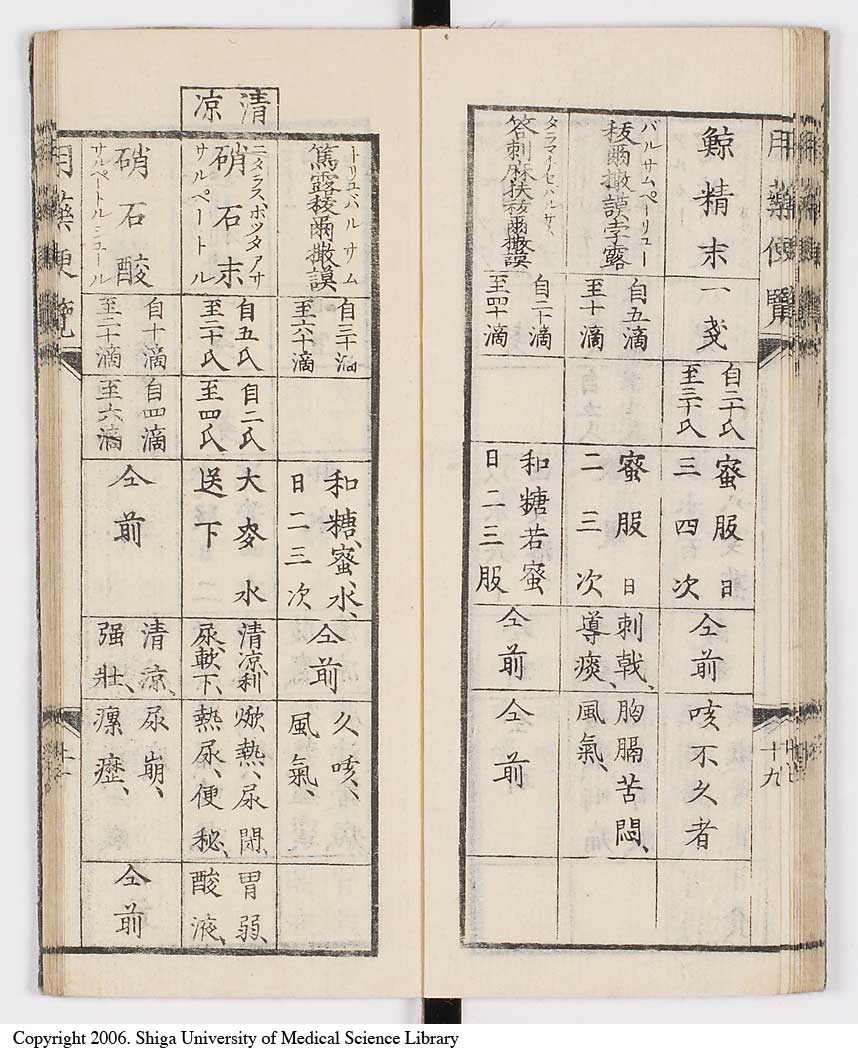 用藥便覽
鯨精末
一戔
自二十氏
至三十氏
蜜服日
三四次
仝前
咳不久者
バルサムペーリュー
秡爾撒謨孛露
自五滴
至十滴
蜜服日
二三次
刺戟、
導痰、
胸膈苦悶、
風氣、
答刺麻扶秡爾撒謨
自二十滴
至四十滴
和糖若蜜
日二三服
仝前
仝前
十九
清凉
トリュバルサム
篤露秡爾撒謨
自三十滴
至六十滴
和糖、蜜、水、
日二三次
仝前
久咳、
風氣、
ニタラスポツタアサ
硝石末
サルペートル
自五氏
至二十氏
自二氏
至四氏
大麥水
送下
清凉、利
尿、軟下、
焮熱、尿閉、
熱尿、便秘、
胃弱、
酸液、
硝石酸
サルペートルシュール
自十滴
至二十滴
自四滴
至六滴
仝前
清凉、
强壯、
尿崩、
瘰癧、
仝前
用藥便覽
Copyright 2006. Shiga University of Medical Science Library